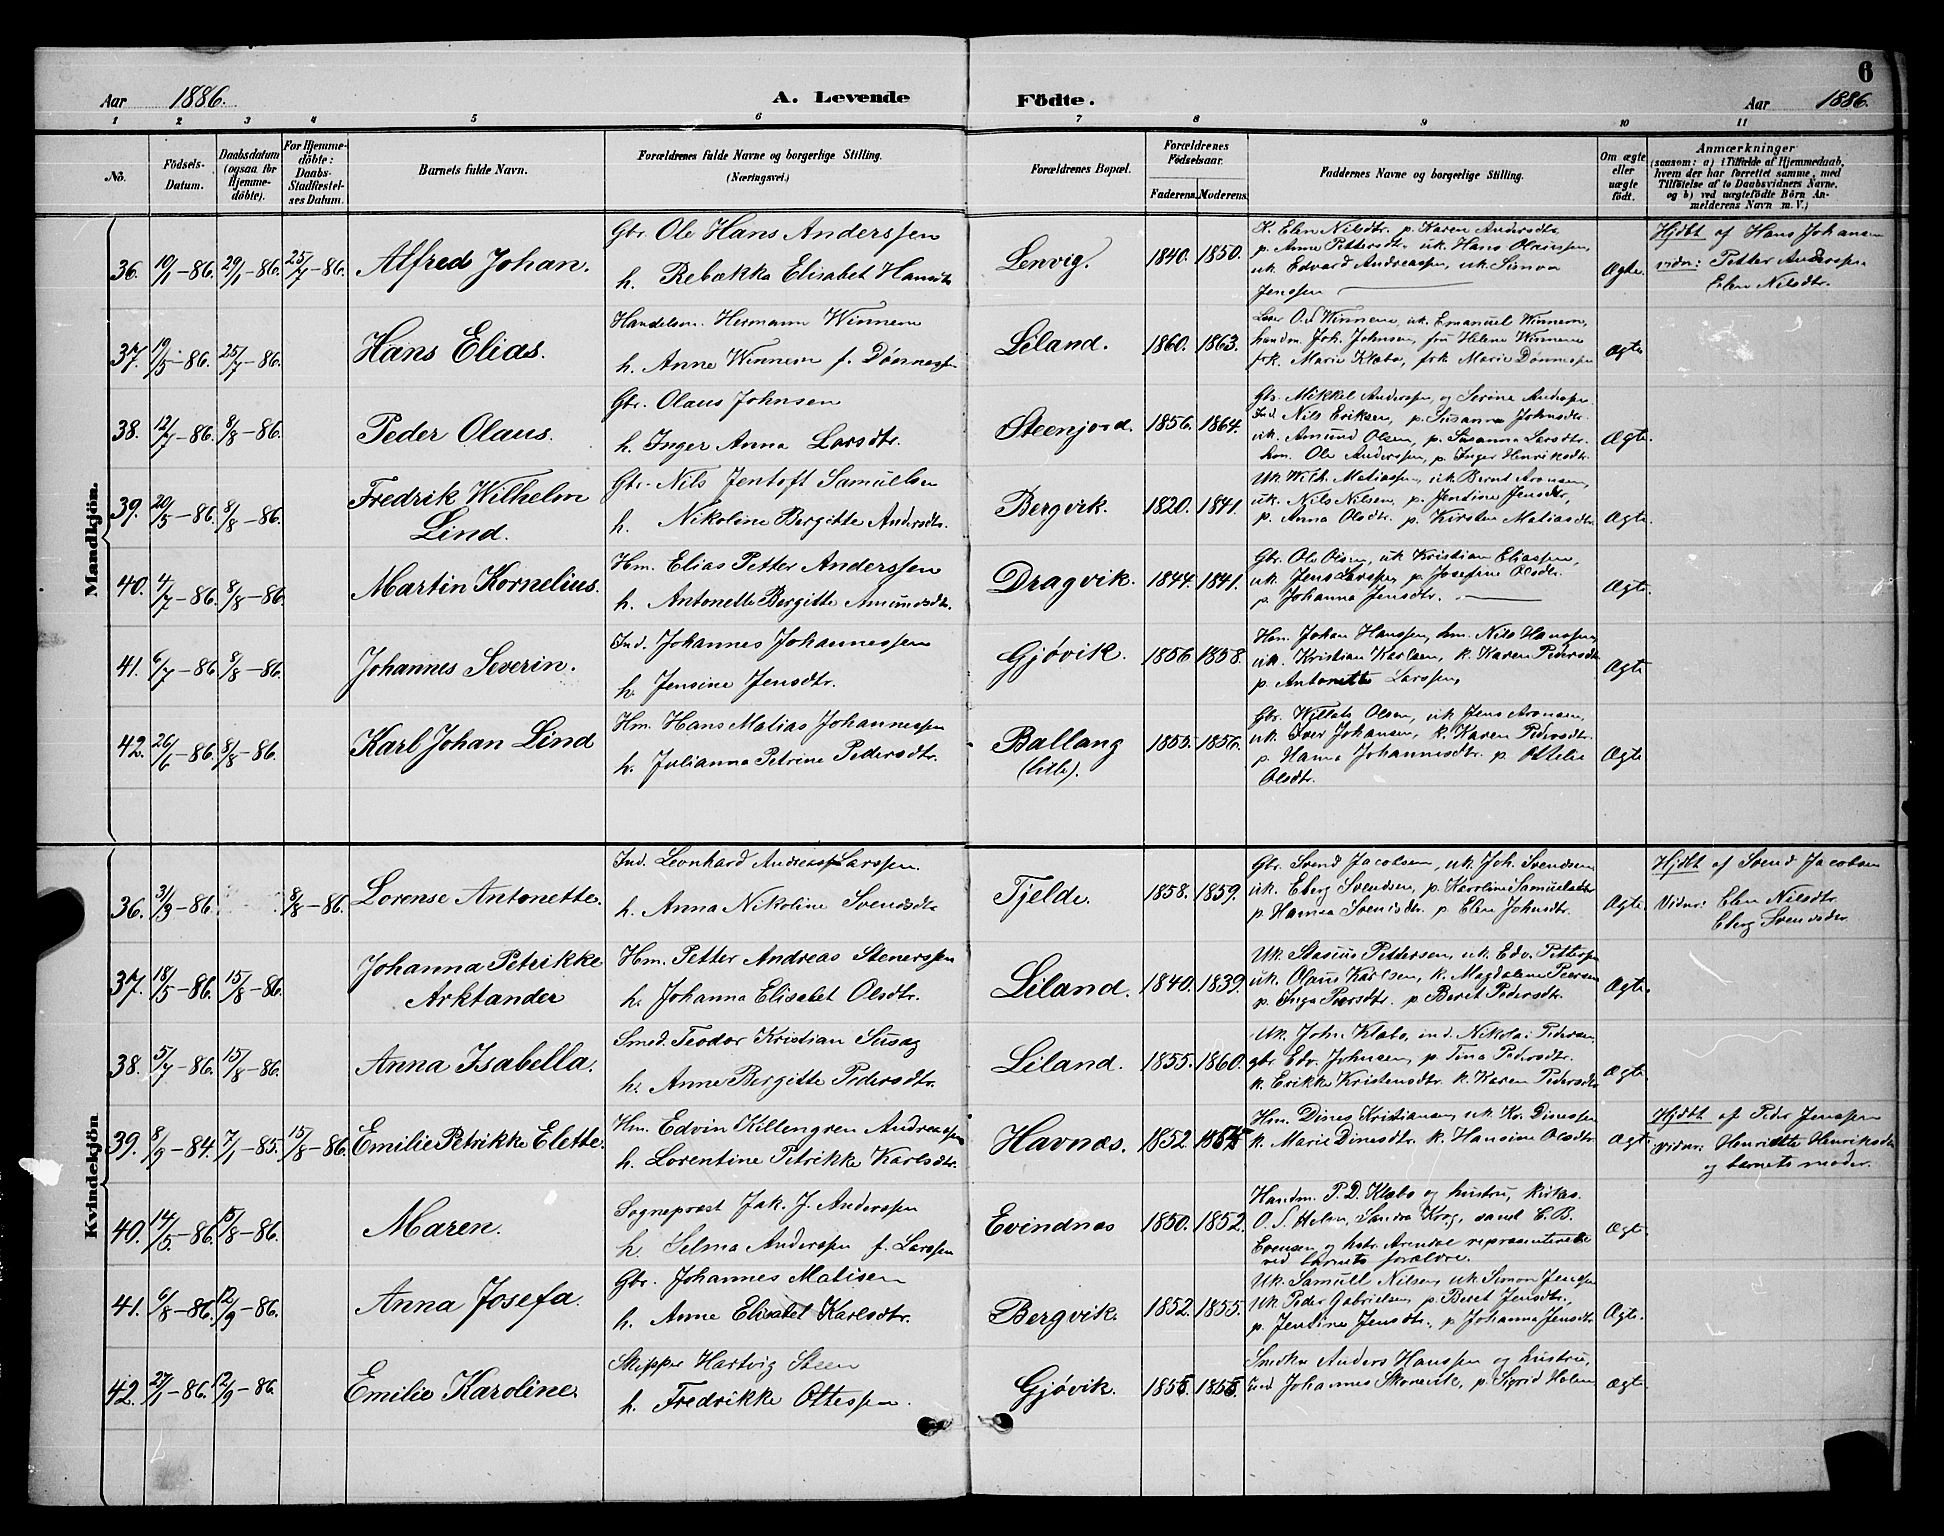 6
Aar 1886. A. Levende Födte. Aar 1886.
1 2 3 4 5 6 7 8 9 10 11
No.
Födsels-
Datum.
Daabsdatum
(ogsaa for
Hjemme-
döbte).
For Hjemme-
döbte:
Daabs-
Stadfæstel-
ses Datum.
Barnets fulde Navn.
Forældrenes fulde Navne og borgerlige Stilling.
(Næringsvei.)
Forældrenes Bopæl.
Forældrenes
Födselsaar.
Faderens. Moderens.
Faddernes Navne og borgerlige Stilling.
Om ægte
eller
uægte
födt.
Anmærkninger
(saasom: a) i Tilfælde af Hjemmedaab,
hvem der har forrettet samme, med
Tilföielse af to Daabsvidners Navne,
og b) ved uægtefödte Börn An-
melderens Navn m. V.)
Mandkjön.
36. 10/1-86. 29/1-86. 25/7-86. Alfred Johan.
Gbr. Ole Hans Anderssen
h. Rebekka Elisabet Hansdtr
Lenvig. 1840. 1850.
K. Elen Nilsdtr. p. Karen Andersdtr
p. Anne Pettersdtr. uk. Hans
uk. Edvard Andreassen, uk. Simon
Jenssen
Ægte
Hjdbt af Hans Johansen
vidn: Petter Anderssen
Elen Nilsdtr.
37. 19/5-86. 25/7-86. Hans Elias.
Handelsm. Hermann Winnem
h. Anne Winnem f. Dønnessen
Liland. 1860. 1863.
O. Winnem, uk. Emanuel Winnem,
handm. Joh. Johnsen, fru Helene Winnem
frk. Marie Klæbo, frk. Marie Dønnessen
Ægte
38. 12/7-86. 8/8-86. Peder Olaus.
Gbr. Olaus Johnsen
h. Inger Anna Larsdtr.
Steenjord. 1856. 1864.
Gbr. Mikkel Anderssen og Serine Anderssen.
Ind. Nils Eriksen, p. Susanna Johnsdtr.
uk. Amund Olsen, p. Susanna Larsdtr.
hm. Ole Anderssen, p. Inger Henriksdtr.
Ægte.
39. 20/5-86. 8/8-86. Fredrik Wilhelm
Lind.
Gbr. Nils Jentoft Samuelsen
h. Nikoline Bergitte Andersdtr.
Bergvik. 1820. 1841.
Uk. Wilh. Matiassen, uk. Bernt Aronsen,
uk. Nils Nilsen, p. Jentine Jensdtr,
p. Anna Olsdtr. p. Kirsten Matiasdtr.
Ægte.
40. 4/7-86. 8/8-86. Martin Kornelius.
Hm. Elias Petter Anderssen
h. Antonette Bergitte Amundsdtr.
Dragvik. 1844. 1841.
Gbr. Ole Olsen, uk. Kristian Eliassen,
uk. Jens Larssen, p. Josefine Olsdtr.
p. Johanna Jensdtr.
Ægte.
41. 6/7-86. 8/8-86. Johannes Severin.
Ind. Johannes Johannessen
h. Jensine Jensdtr.
Gjøvik. 1856. 1858.
Hm. Johan Hanssen, hm. Nils Hanssen,
uk. Kristian Karlsen, k. Karen Pedersdtr
p. Antonette Larssen,
Ægte
42. 26/6-86. 8/8-86. Karl Johan Lind
Hm. Hans Matias Johannessen
h. Julianna Petrine Pedersdtr.
Ballang
(litle). 1855. 1856.
Gbr. Olsen, uk. Jens Aronsen,
uk. Iver Johansen, k. Karen Pedersdtr.
p. Hanna Johannesdtr. p. Ottelie
Olsdtr.
Ægte
Kvindekjön
36. 31/3-86. 8/8-86. Lorense Antonette.
Ind. Leonhard Andreas Larssen.
h. Anna Nikoline Svendsdtr
Tjelde. 1858. 1859.
Gbr. Svend Jacobsen, uk. Joh. Svendsen
uk. Eberg Svendsen, p. Karoline Samuelsdtr
p. Hanna Svendsdtr. p. Elen Johnsdtr.
Ægte.
Hjdbt af Svend Jacobsen
Vidnr: Elen Nilsdtr.
Eberg Svendsdtr.
37. 18/5-86. 15/8-86. Johanna Petrikke
Arktander
Hm. Petter Andreas Stenerssen
h. Johanna Elisabet Olsdtr.
Liland. 1840. 1839.
Uk. Stasius Pettersen, uk. Edv. Petterssen
uk. Olaus Karlsen, k. Magdalene Peersen
p. Inga Peersdtr. p. Beret Pedersdtr.
Ægte.
38. 5/7-86. 15/8-86. Anna Isabella.
Smed. Teodor Kristian Susæg
h. Anne Bergitte Pedersdtr.
Liland. 1855. 1860.
Uk. John Klæbo, ind. Nikolai Pedersen,
gbr. Edv. Johnsen, p. Tina Pedersdtr.
k. Erikke Kristensdtr. k. Karen Pedersdtr
Ægte.
39. 8/9-84. 7/1-85. 15/8-86. Emilie Petrikke Elette.
Hm. Edvin Killengren Andreassen
h. Lorentine Petrikke Karlsdtr.
Havnæs. 1852. 1855.
Hm. Dines Kristiansen, uk. Kr. Dinessen
k. Marie Dinesdtr. k. Hansine Olsdtr
Ægte
Hjdbt af Peder Jenssen
Vidnr: Henriette Henriksdtr
og barnets moder.
40. 14/5-86. 15/8-86. Maren.
Sogneprest Jak. J. Anderssen
h. Selma Anderssen f. Larssen
Evindnæs 1850. 1852.
Handm. P. D. Klæbo og hustru, kirkes.
O. S. Helm, Sandra Krog, samt E. B.
Evensen og hstr. Arendal repræsenterede
ved barnets forældre.
Ægte.
41. 6/8-86. 12/9-86. Anna Josefa.
Gbr. Johannes Matisen
h. Anne Elisabet Karlsdtr.
Bergvik. 1852. 1855.
Uk. Samuel Nilsen, uk. Simon Jenssen
Uk. Peder Gabrielsen, p. Beret Jensdtr.,
p. Jentine Jensdtr., p. Johanna Jensdtr
Ægte.
42. 27/1-86. 12/9-86. Emilie Karoline.
Skipper Hartvig Steen
h. Fredrikke Ottessen.
Gjøvik. 1855. 1855.
Anders Hanssen og hustru,
ind. Johannes p. Sigrid Holm
Ægte.